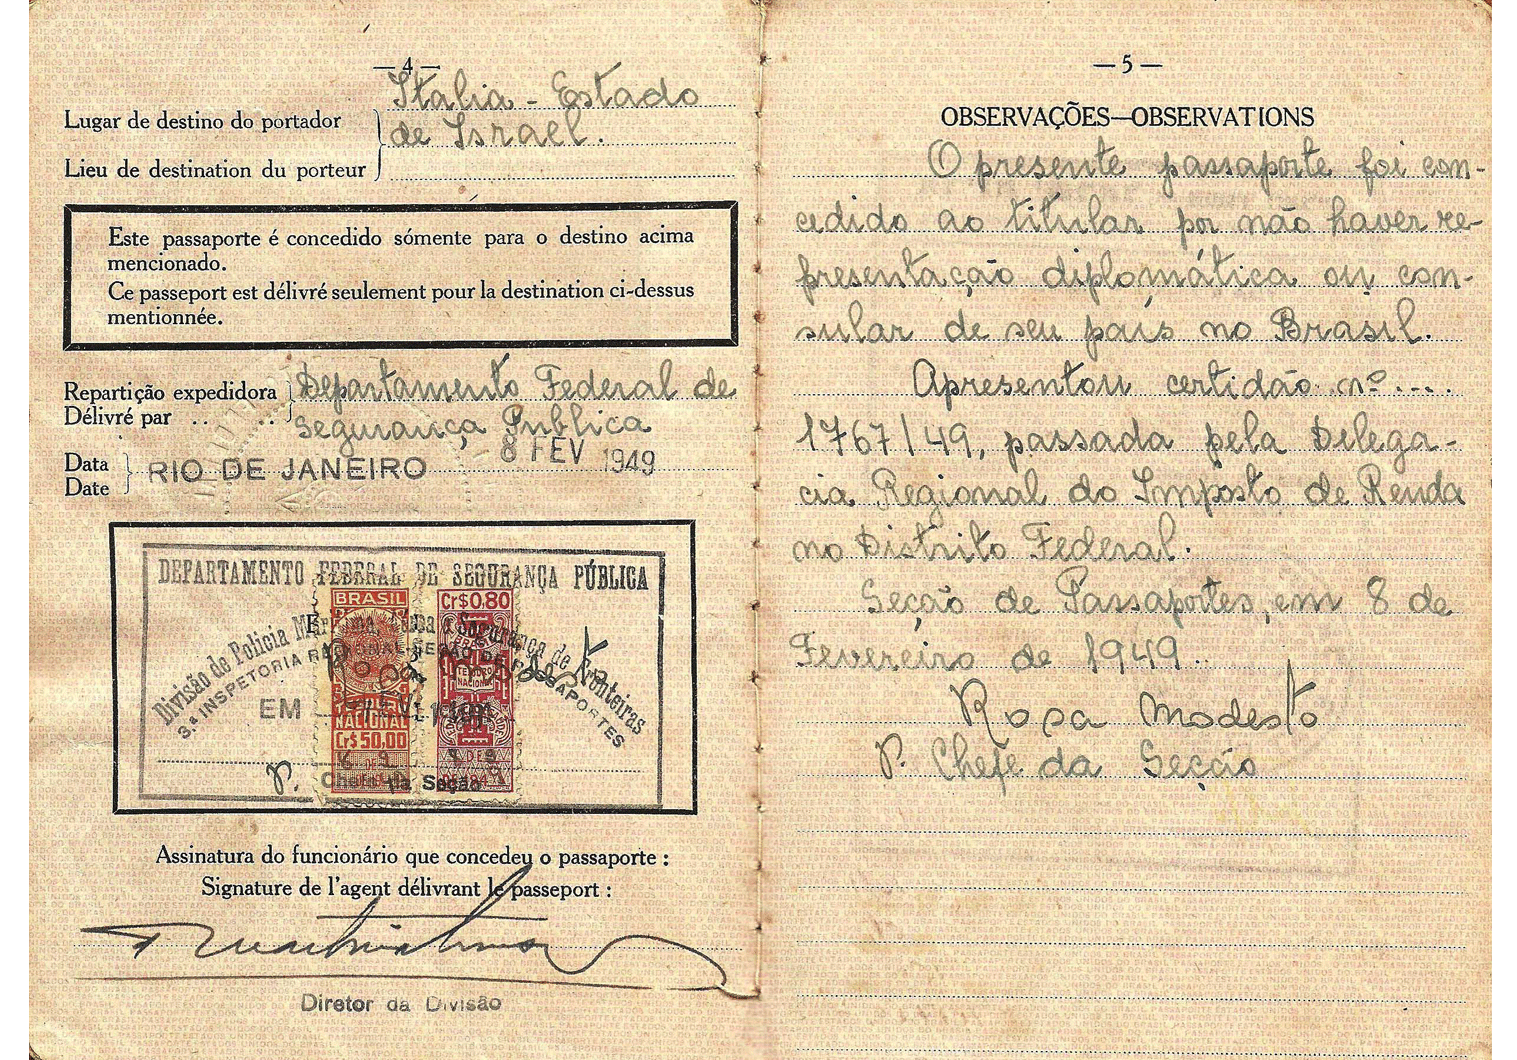 — 4 —
Lugar de destino do portador
Lieu de destination du porteur
Italia - Estado
de Israel.
Este passaporte é concedido sómente para o destino acima
mencionado.
Ce passeport est délivré seulement pour la destination ci-dessus
mentionnée.
Repartição expedidora
Délivré par . . . .
Departamento Federal de
Segurança Publica
Data
Date
RIO DE JANEIRO - 8 FEV 1949
DEPARTAMENTO FEDERAL DE SEGURANÇA PÚBLICA
Divisão de Polícia Marítima, Aérea e Segurança de Fronteiras
3.ª INSPETORIA REGIONAL-SEÇÃO DE PASSAPORTES
BRASIL
NACIONAL
Cr$ 50,00
Cr$0,80
Rosa Modesto
EM
P. Chefe da Seção
Assinatura do funcionário que concedeu o passaporte :
Signature de l'agent délivrant le passeport :
Diretor da Divisão
— 5 —
OBSERVAÇÕES—OBSERVATIONS
O presente passaporte foi con-
cedido ao titular por não haver re-
presentação diplomática ou con-
sular de seu país no Brasil.
Apresentou certidão nº ....
1767/49, passada pela Delega-
cia Regional do Imposto de Renda
no Distrito Federal.
Secção de Passaportes, em 8 de
Fevereiro de 1949.
Rosa Modesto
P. Chefe da Secção